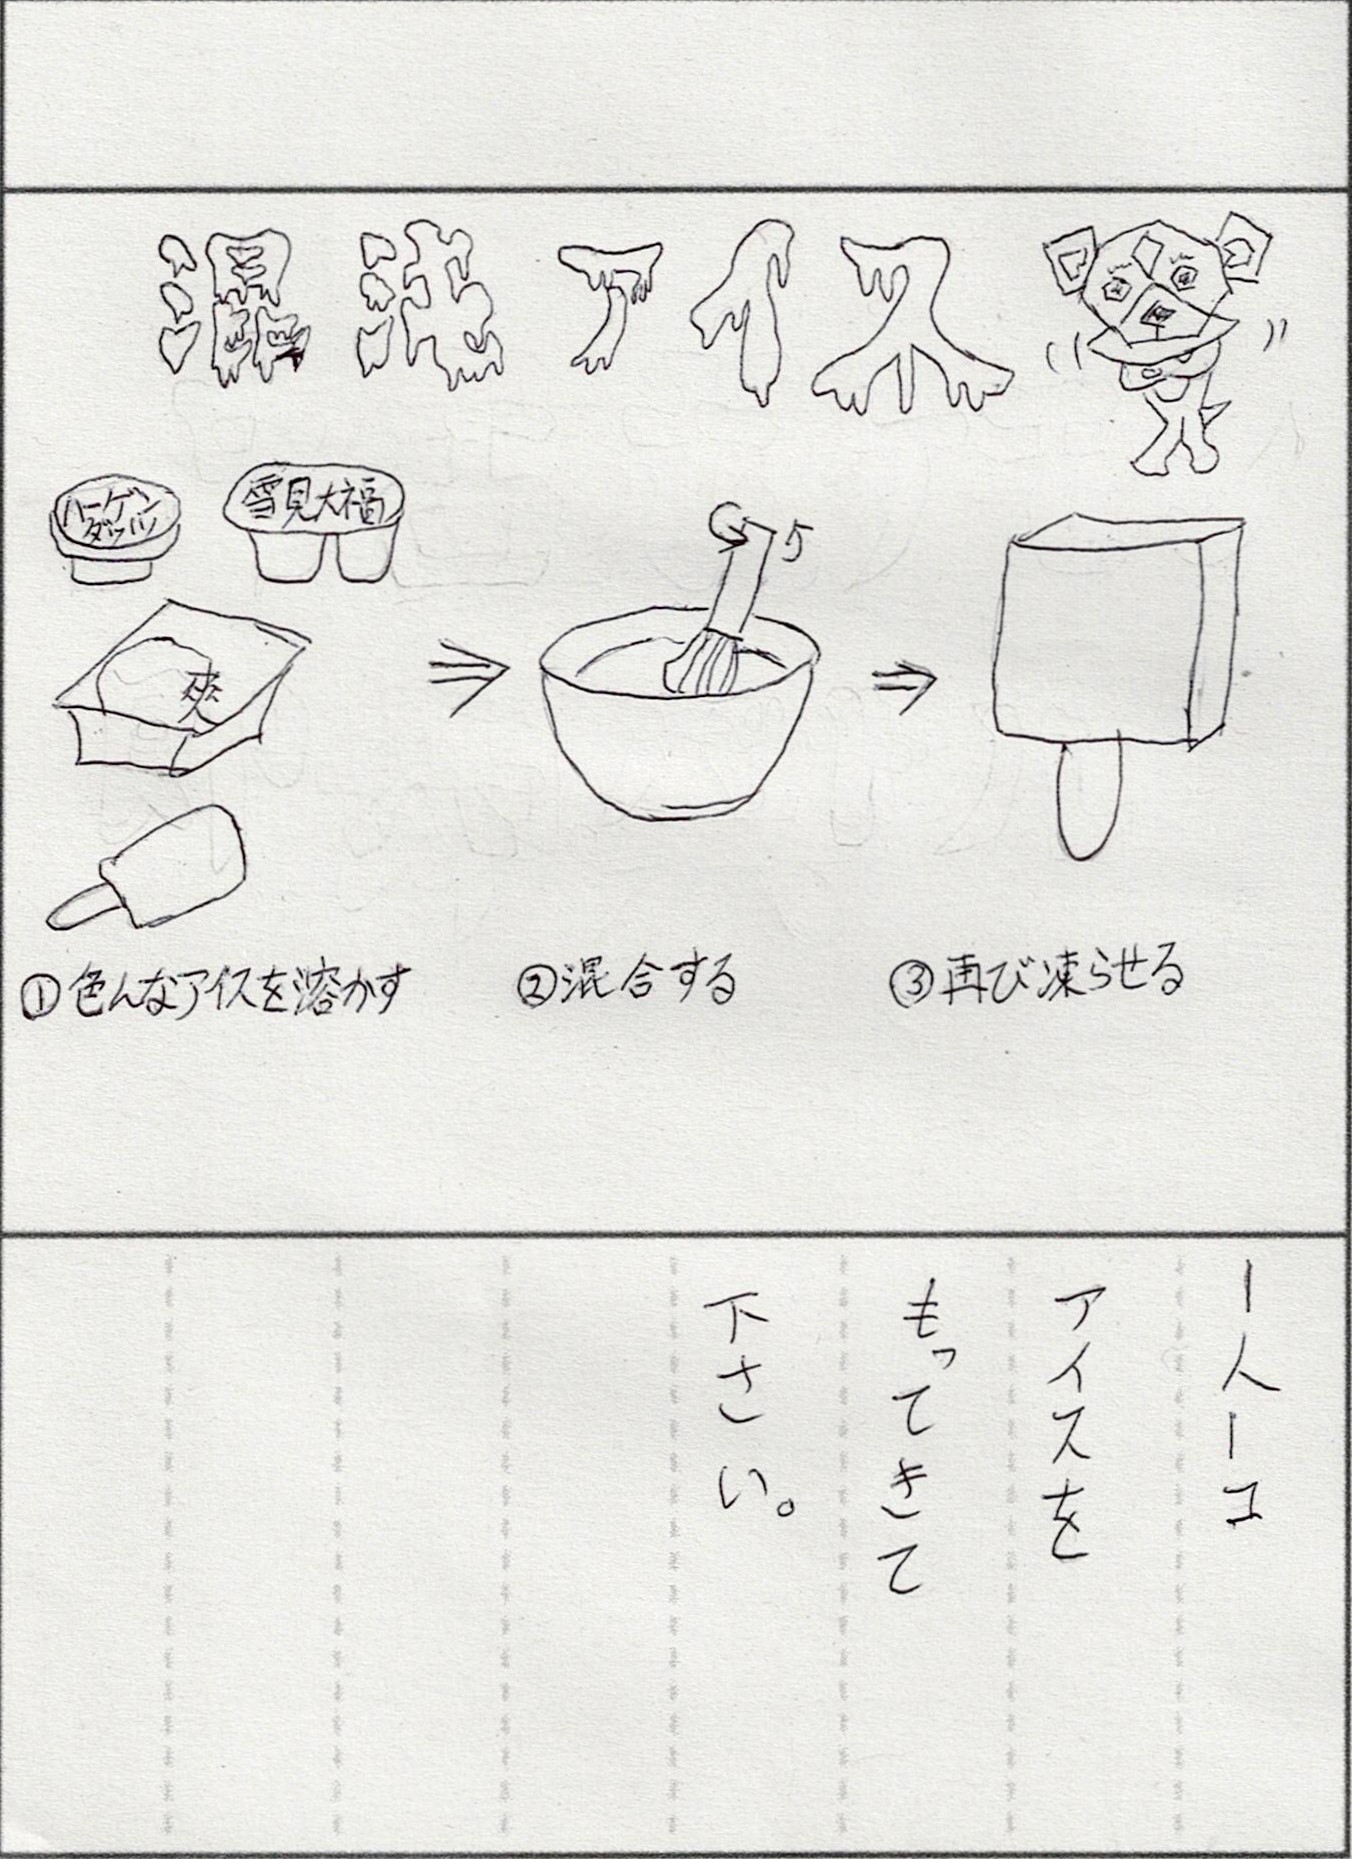 混沌アイス
ハーゲン
ダッツ
雪見大福
爽
①色んなアイスを溶かす
②混合する
③再び凍らせる
一人一コ
アイスを
もってきて
下さい。